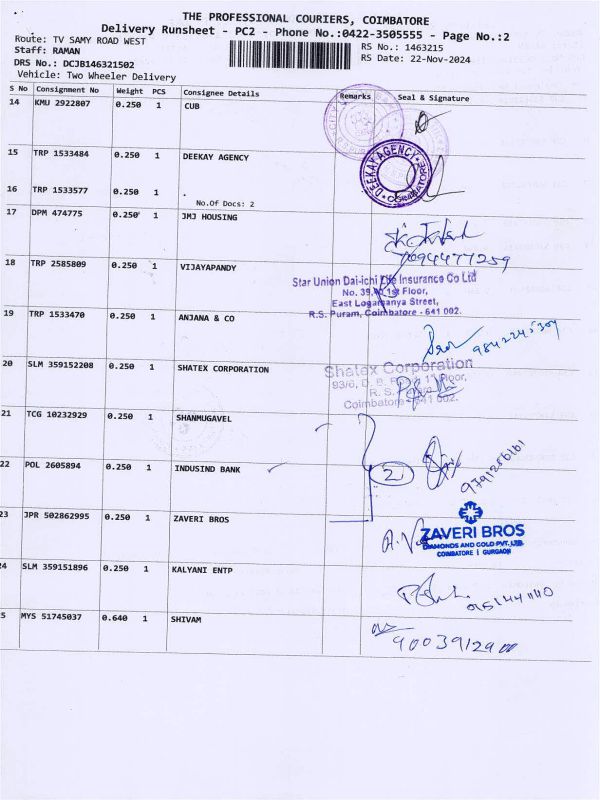 THE PROFESSIONAL COURIERS, COIMBATORE
Delivery Runsheet - PC2 - Phone No.:0422-3505555 - Page No.:2
Route: TV SAMY ROAD WEST
Staff: RAMAN
RS No.: 1463215
DRS No.: DCJB146321502
RS Date: 22-Nov-2024
Vehicle: Two Wheeler Delivery
S No Consignment No Weight PCS Consignee Details Remarks Seal & Signature
14 KMU 2922807 0.250 1 CUB
15 TRP 1533484 0.250 1 DEEKAY AGENCY
DEEKAY AGENCY COIMBATORE
16 TRP 1533577 0.250 1 .
No.Of Docs: 2
17 DPM 474775 0.250 1 JMJ HOUSING
7094477259
18 TRP 2585809 0.250 1 VIJAYAPANDY
Star Union Dai-ichi Life Insurance Co Ltd
No. 39, 1st Floor,
East Logamanya Street,
R.S. Puram, Coimbatore - 641 002.
19 TRP 1533470 0.250 1 ANJANA & CO
9842245304
20 SLM 359152208 0.250 1 SHATEX CORPORATION
Shatex Corporation
93/6, D. B. Floor,
R. S.
Coimbatore - 641 002.
21 TCG 10232929 0.250 1 SHANMUGAVEL
22 POL 2605894 0.250 1 INDUSIND BANK
2
9791256161
23 JPR 502862995 0.250 1 ZAVERI BROS
ZAVERI BROS
DIAMONDS AND GOLD PVT. LTD.
COIMBATORE | GURGAON
24 SLM 359151896 0.250 1 KALYANI ENTP
9151441140
25 MYS 51745037 0.640 1 SHIVAM
9003912900